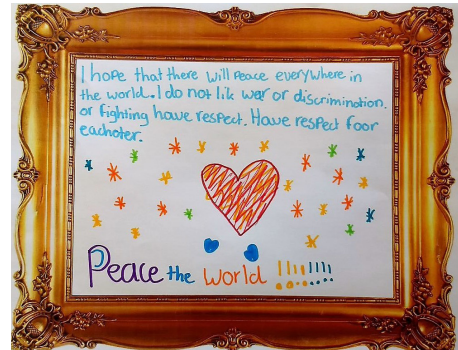 I hope that there will peace everywhere in
the world. I do not lik war or discrimination.
or fighting have respect. Have respect foor
eachoter.
Peace the world !!!!!!!!